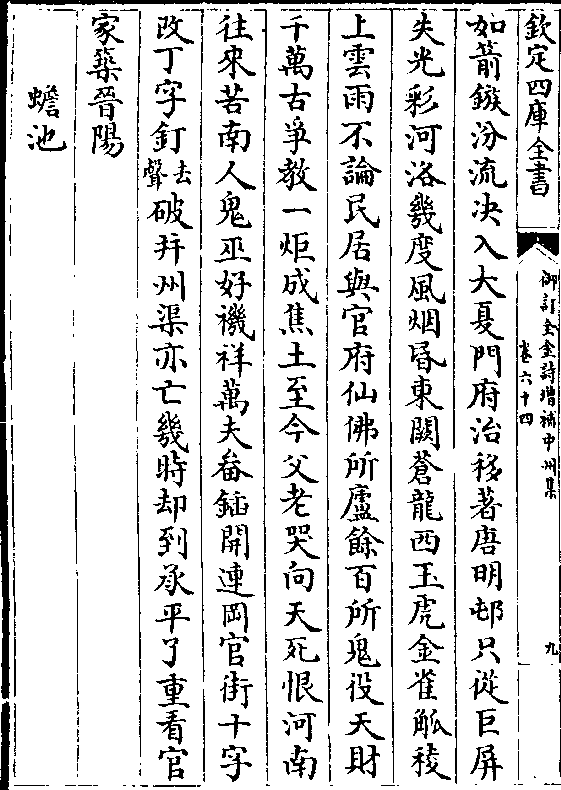 欽定四庫全書
御訂全金詩增補中州集
卷六十四
九
如箭鏃汾流決入大夏門府治移著唐明邨只從巨屏
失光彩河洛幾度風烟昏東闕蒼龍西玉虎金雀觚稜
上雲雨不論民居與官府仙佛所廬餘百所鬼役天財
千萬古爭教一炬成焦土至今父老哭向天死恨河南
往來苦南人鬼巫好禨祥萬夫畚鍤開連岡官街十字
改丁字釘去聲破并州渠亦亡幾時却到承平了重看官
家築晉陽
蟾池